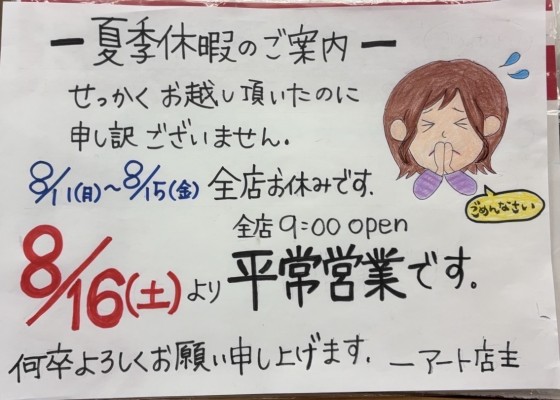 ー夏季休暇のご案内ー
せっかくお越し頂いたのに
申し訳ございません.
8/11(月)～8/15(金) 全店お休みです.
ごめんなさい
全店9:00 open
8/16(土)より 平常営業です。
何卒よろしくお願い申し上げます. ―アート店主